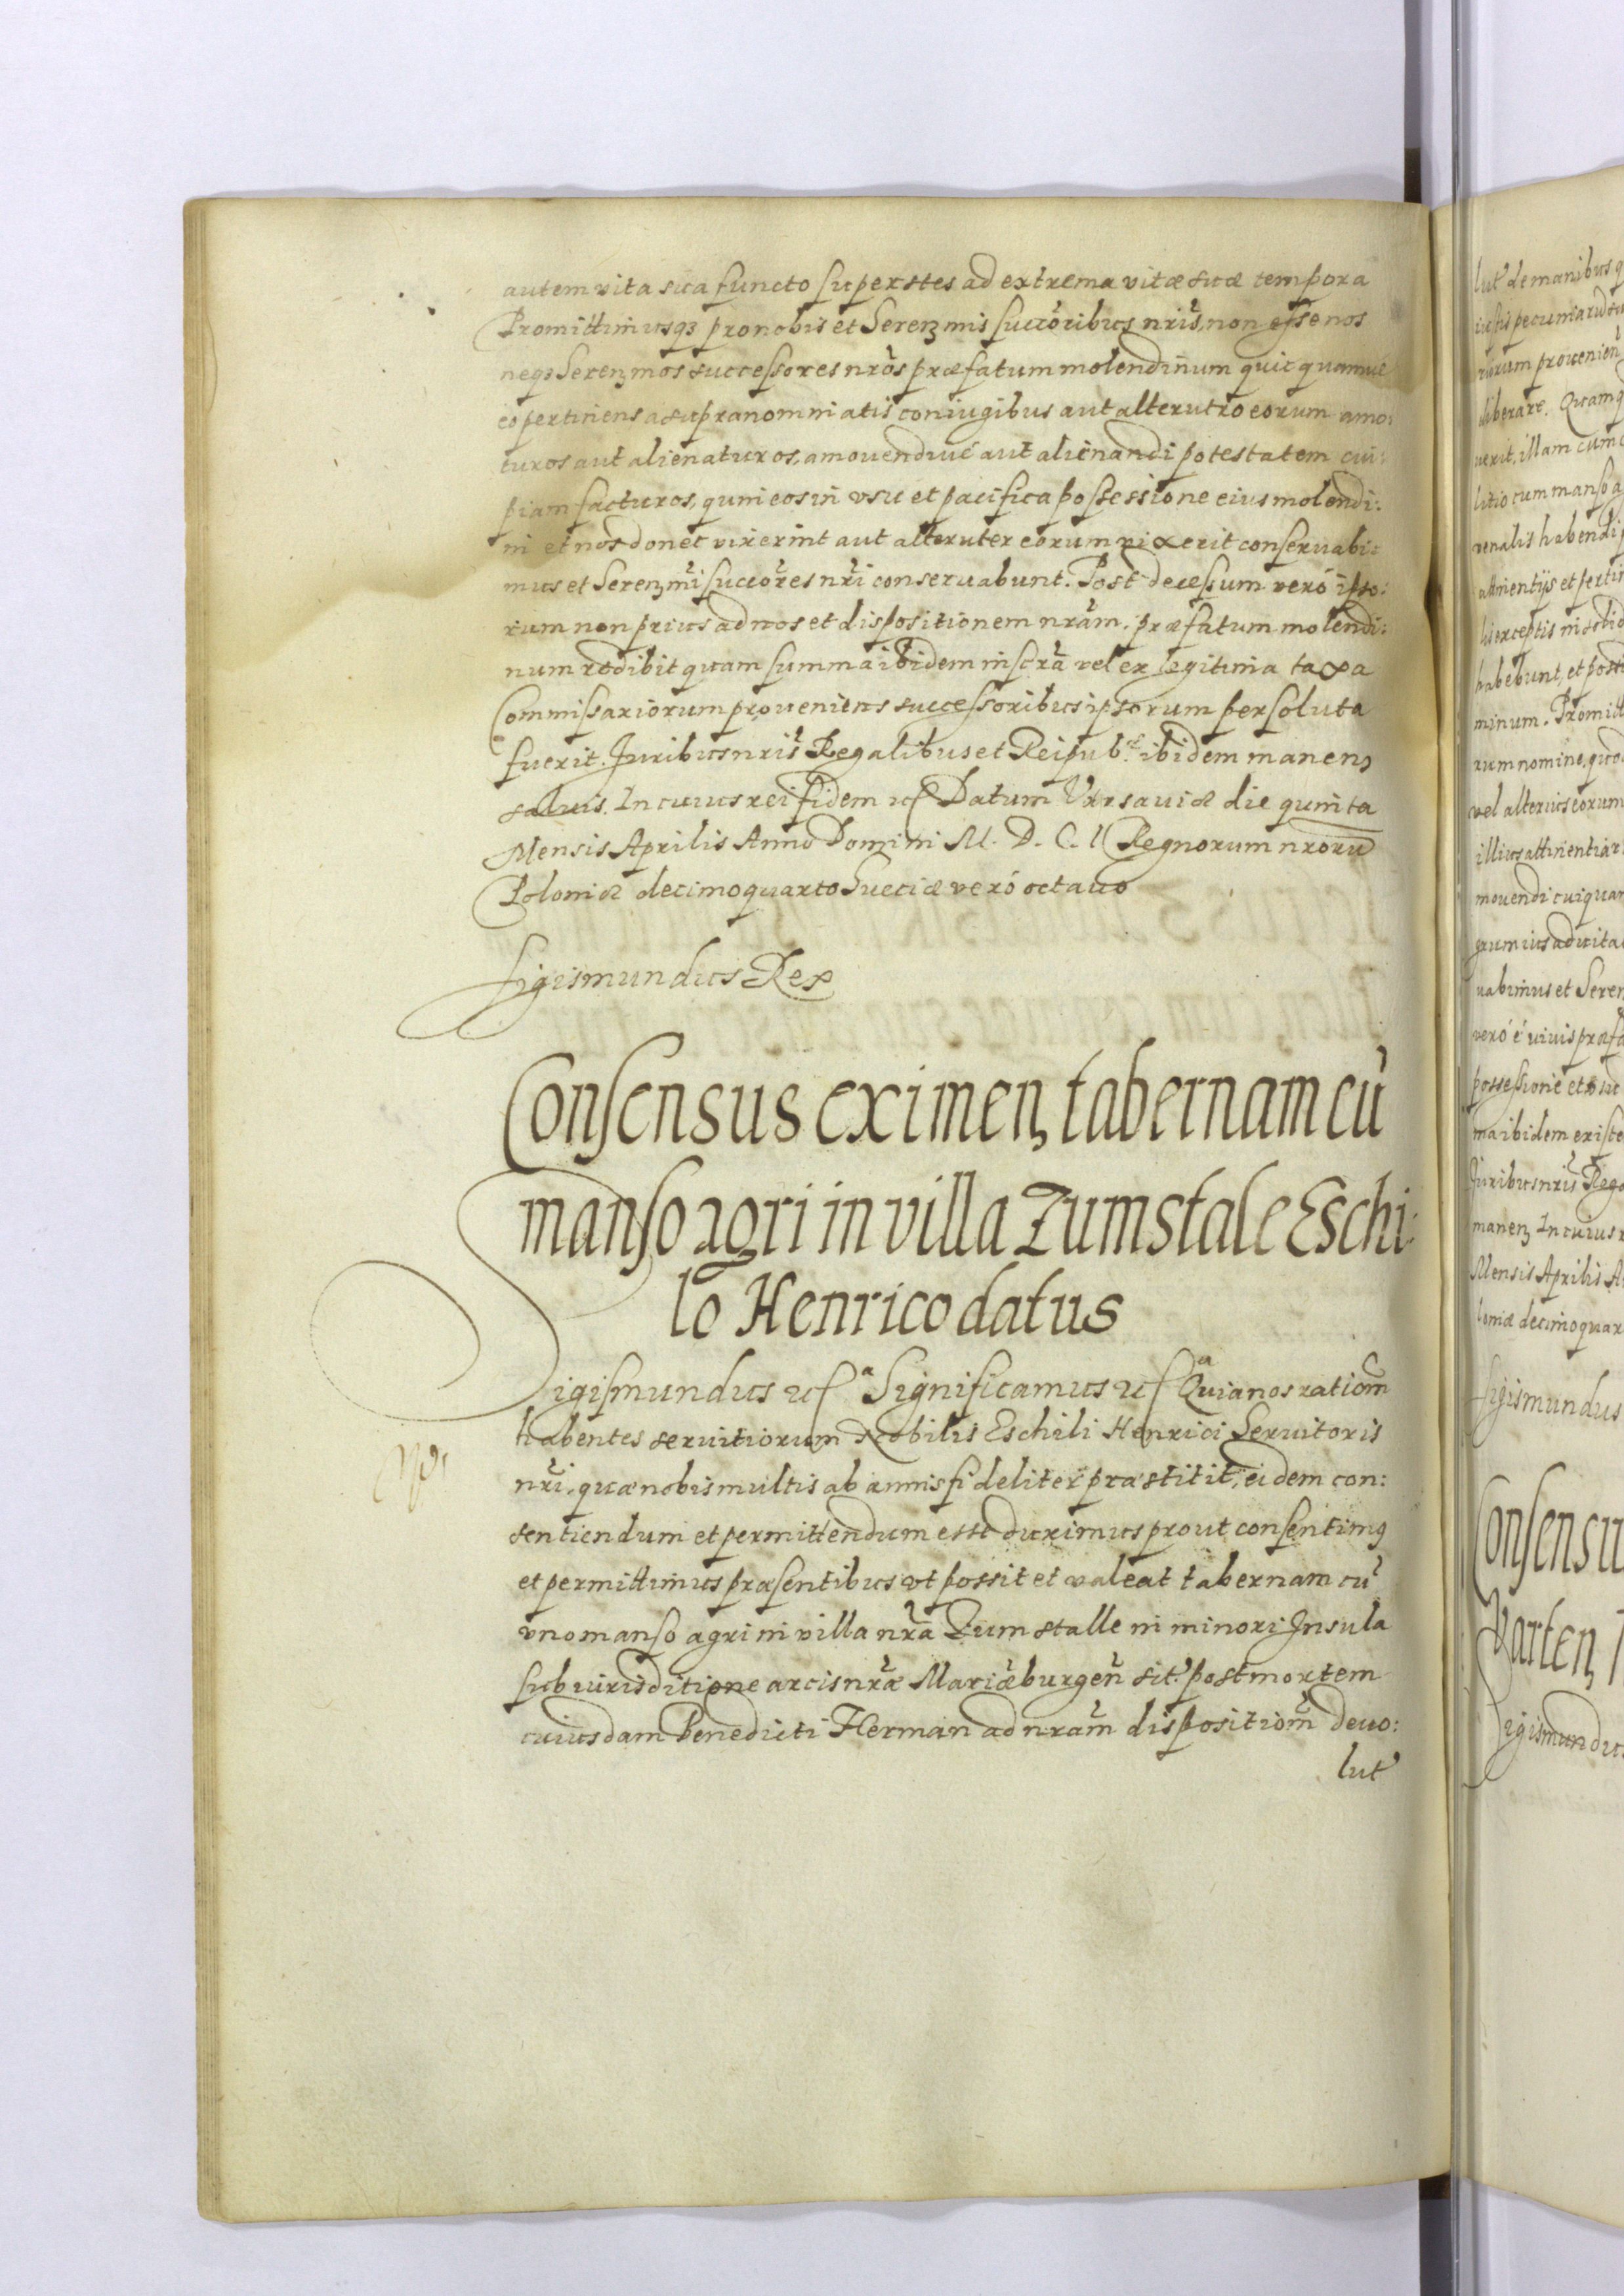 autem vita sua functo superstes ad extrema vitæ suæ tempora
Promittimusq3 pro nobis et Seren3mis succoribus nris, non esse nos
neq3 Seren3mos successores nros præfatum molendinum quic quamue
eo pertinens a supranominatis coniugibus aut alterutro eorum amo:
turos aut alienaturos, amouendiué aut alienandi potestatem cui:
piam facturos, quin eos in vsu et pacifica possessione eius molendi:
ni et nos donec vixerint aut alteruter eorum vixerit conseruabi:
mus et Seren3mi succores nri conseruabunt. Post decessum veró ipso:
rum non prius ad nos et dispositionem nram, præfatum molendi:
num redibit quam summa ibidem inscra vel ex legitima taxa
Commissariorum proueniens successoribus ipsorum persoluta
fuerit. Juribus nris Regalibus et Reipub: ibidem manen3
saluis. In cuius rei fidem etc Datum Varsauiæ die quinta
Mensis Aprilis Anno Domini M. D. C. I Regnorum nroru
Poloniæ decimoquarto Sueciæ veró octauo
Sigismundus Rex
Consensus eximen3 tabernam cu
manso agri in villa Zumstale Eschi:
lo Henrico datus
Sigismundus etc a Significamus etc a Quia nos rationm
habentes seruitiorum Nobilis Eschili Henrici Seruitoris
nri, quæ nobis multis ab annis fideliter præstitit, eidem con:
sentiendum et permittendum esse duximus prout consentimus
et permittimus præsentibus vt possit et valeat tabernam cu
vno manso agri in villa nra Zum stalle in minori Insula
sub iurisditione arcis nræ Mariæburgen sit. post mortem
cuiusdam Benedicti Herman ad nram dispositiom deuo:
lut
lut de manibus
liberare. Quamq
verit, illam cum
litio cum manso a
venalis habendi
attinentijs et perti
habebunt, et post
minum. Promitt
rum nomine, quod
vel alterius eorum
illius attinentiar
mouendi cuiquam
uabimus et Seren
veró é viuis præfa
possessione et
ma ibidem existe
Juribus nris Rega
manen3 In cuius r
Mensis Aprilis A
loniæ decimoquar
Sigismundus
Consensu
Varten3
Sigismundus